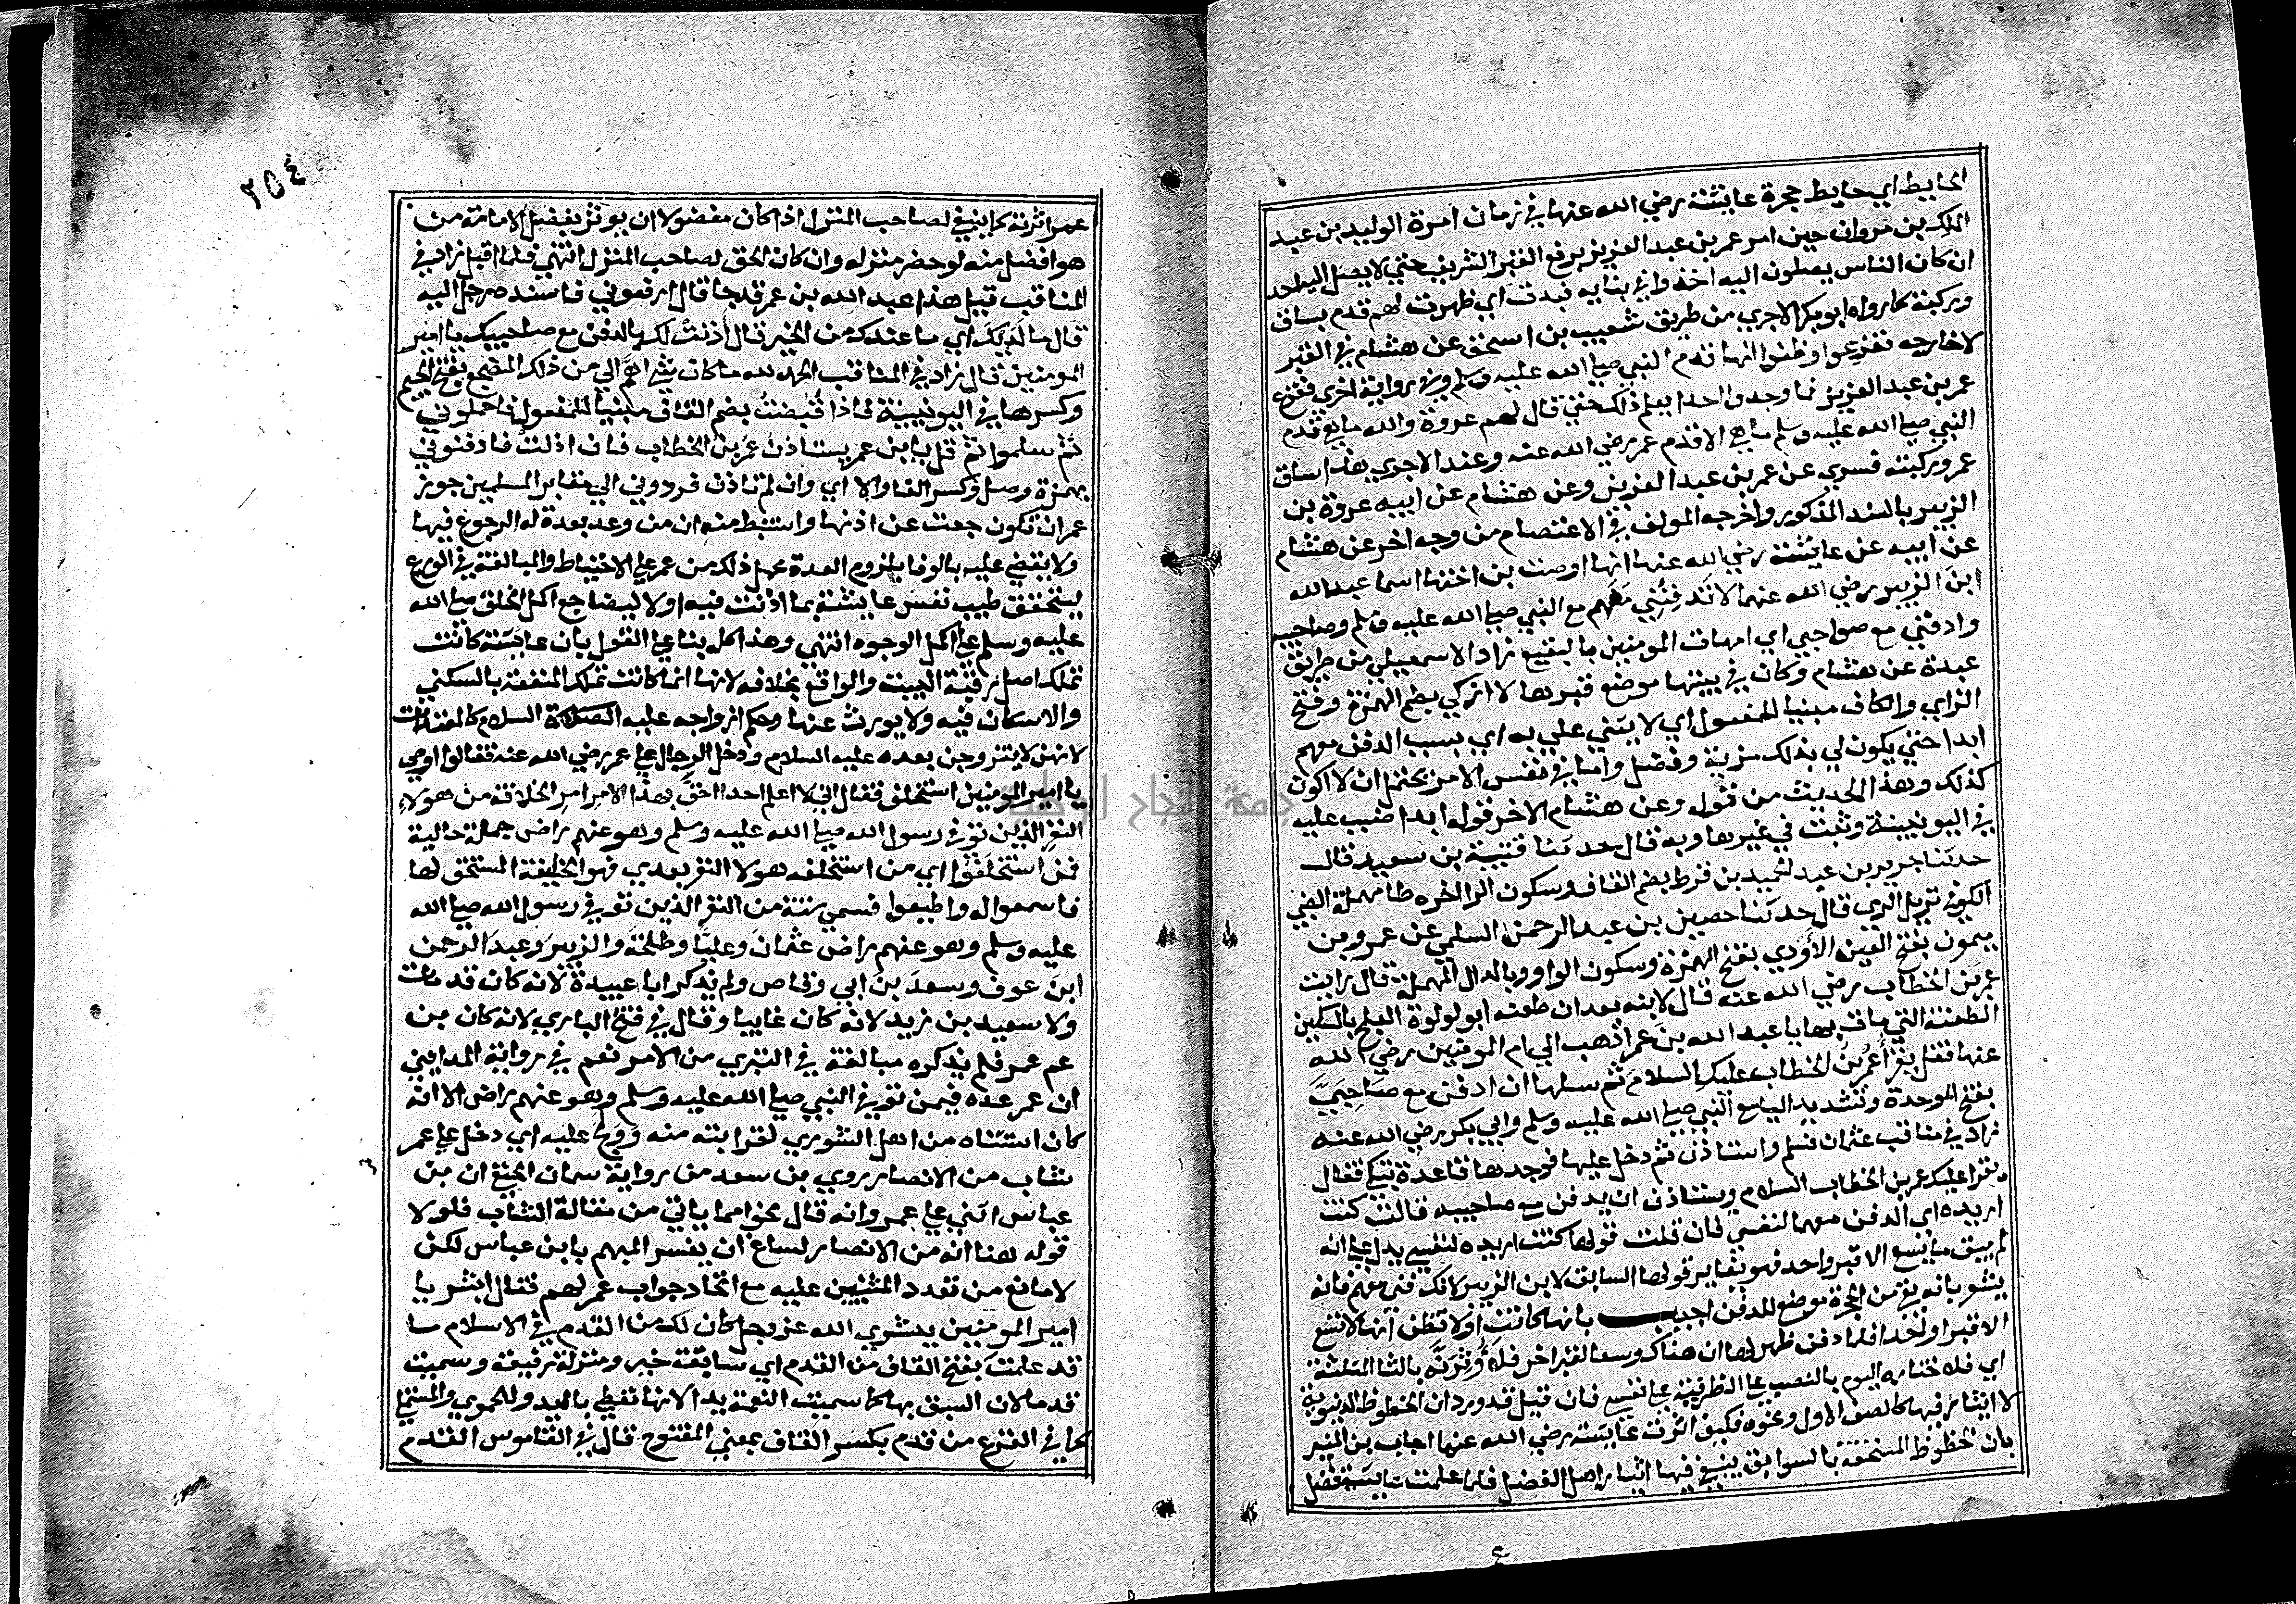 الحايط اي حايط حجرة عايشة رضي الله عنها في زمان امرة الوليد بن عبد
الملك بن مروان حين امر عمر بن عبد العزيز برفع القبر الشريف حتي لا يصل اليه احد
ان كان الناس يصلون اليه اخذوا في بنايه فبدت اي ظهرت لهم قدم بساق
وركبة كما رواه ابو بكر الاجري من طريق شعيب بن اسحق عن هشام في القبر
لا خارجه ففزعوا وظنوا انها قدم النبي صلي الله عليه وسلم وفي رواية اخري ففزع
عمر بن عبد العزيز فما وجدوا احدا يعلم ذلك حتي قال لهم عروة والله ما هي قدم
النبي صلي الله عليه وسلم ما هي الا قدم عمر رضي الله عنه وعند الاجري هذا ساق
عمر وركبته فسري عن عمر بن عبد العزيز وعن هشام عن ابيه عروة بن
الزبير بالسند المذكور واخرجه المولف في الاعتصام من وجه اخر عن هشام
عن ابيه عن عايشة رضي الله عنها انها اوصت بن اختها اسما عبد الله
ابن الزبير رضي الله عنهما لا تدفنني معهم مع النبي صلي الله عليه وسلم وصاحبيه
وادفني مع صواحبي اي امهات المومنين بالبقيع زاد الاسمعيلي من طريق
عبدة عن هشام وكان في بيتها موضع قبر بها لا ازكي بضم الهمزة وفتح
الزاي والكاف مبنيا للمفعول اي لا يثني علي به اي بسبب الدفن معهم
ابدا حتي يكون لي بذلك مزية وفضل وانا في نفس الامر يحتمل ان لا اكون
كذلك وهذا الحديث من قوله وعن هشام الي اخر قوله ابدا ضبب عليه
في اليونينية وثبت في غيرها وبه قال حدثنا قتيبة بن سعيد قال
حدثنا جرير بن عبد الحميد بن قرط بضم القاف وسكون الرا اخره طا مهملة الضبي
الكوفي نزيل الري قال حدثنا حصين بن عبد الرحمن السلمي عن عمرو بن
ميمون بفتح العين الأودي بفتح الهمزة وسكون الواو وبالدال المهملة قال رايت
عمر بن الخطاب رضي الله عنه قال لابنه بعد ان طعنه ابو لولوة العلج بالسكين
الطعنة التي مات بها يا عبد الله بن عمر اذهب الي ام المومنين رضي الله
عنها فقل يقرأ عمر بن الخطاب عليك السلام ثم سلها ان ادفن مع صاحبيّ
بفتح الموحدة وتشديد اليا مع النبي صلي الله عليه وسلم وابي بكر رضي الله عنه
زاد في مناقب عثمان فسلم واستاذن ثم دخل عليها فوجدها قاعدة تبكي فقال
يقرا عليك عمر بن الخطاب السلام ويستاذن ان يدفن مع صاحبيه قالت كنت
اريده اي الدفن معهما لنفسي فان قلت قولها كنت اريده لنفسي يدل علي انه
لم يبق ما يسع الا قبر واحد فهو يغاير قولها السابق لابن الزبير لا تدفني معهم فانه
يشعر بانه بقي من الحجرة موضع للدفن اجيب بانها كانت اولا تظن انها لا تسع
الا قبرا واحدا فلما دفن ظهر لها ان هناك وسعا لقبر اخر فلأوثرنه بالثا المثلثة
اي فلاختاره اليوم بالنصب علي الظرفية علي نفسي فان قيل قد ورد ان الحظوظ الدينية
لا ايثار فيها كالصف الاول ونحوه فكيف اثرت عايشة رضي الله عنها اجاب بن المنير
بان الحظوظ المستحقة بالسوابق ينبغي فيها ايثار اهل الفضل فلما علمت عايشة فضل
٢٥٤
عمر اثرته كما ينبغي لصاحب المنزل اذا كان مفضولا ان يوثر بفضل الامامة من
هو افضل منه لو حضر منزله وان كان الحق لصاحب المنزل انتهي فلما اقبل زاد في
المناقب قيل هذا عبد الله بن عمر قد جا قال ارفعوني فاسنده رجل اليه
قال ما لديك اي ما عندك من الخبر قال أذنت لك بالدفن مع صاحبيك يا امير
المومنين قال زاد في المناقب الحمد لله ما كان شي اهم الي من ذلك المضجع بفتح الجيم
وكسرها في اليونينية فاذا قُبضت بضم القاف مبنيا للمفعول فاحملوني
ثم سلموا ثم قل يا بن عمر يستاذن عمر بن الخطاب فان اذنت فادفنوني
بهمزة وصل وكسر الفا والا اي وان لم تاذن فردوني الي مقابر المسلمين جوز
عمر ان تكون رجعت عن اذنها واستنبط منه ان من وعد بعدة له الرجوع فيها
ولا يقضي عليه بالوفا بلزوم العدة محمل ذلك من عمر علي الاحتياط والمبالغة في الورع
ليتحقق طيب نفس عايشة بما اذنت فيه اولا ليضاجع اكمل الخلق صلي الله
عليه وسلم علي اكمل الوجوه انتهي وهذا كله بنا علي القول بان عايشة كانت
تملك اصل رقبة البيت والواقع بخلافه لانها انما كانت تملك المنفعة بالسكني
والاسكان فيه ولا يورث عنها وحكم ازواجه عليه الصلاة السلام كالمعتدات
لانهن لا يتزوجن بعده عليه السلام ودخل الرجال علي عمر رضي الله عنه فقالوا اوص
يا امير المومنين استخلف فقال اني لا اعلم احدا احق بهذا الامر امر الخلافة من هولاء
النفر الذين توفي رسول الله صلي الله عليه وسلم وهو عنهم راض جملة حالية
فمن استخلفوا اي من استخلفه هولا النفر بعدي فهو الخليفة المستحق لها
فاسمعوا له واطيعوا فسمي ستة من النفر الذين توفي رسول الله صلي الله
عليه وسلم وهو عنهم راض عثمان وعليا وطلحة والزبير وعبد الرحمن
ابن عوف وسعد بن ابي وقاص ولم يذكر ابا عبيدة لانه كان قد مات
ولا سعيد بن زيد لانه كان غايبا وقال في فتح الباري لانه كان بن
عم عمر فلم يذكره مبالغة في التبري من الامر نعم في رواية المدايني
ان عمر عده فيمن توفي النبي صلي الله عليه وسلم وهو عنهم راض الا انه
كان استثناه من اهل الشوري لقرابته منه وولج عليه اي دخل علي عمر
شاب من الانصار روي بن سعد من رواية سماك الحنفي ان بن
عباس اثني علي عمر وانه قال نحوا مما ياتي من مقالة الشاب فلولا
قوله هنا انه من الانصار لساغ ان يفسر المبهم بابن عباس لكن
لا مانع من تعدد المثنيين عليه مع اتحاد جواب عمر لهم فقال ابشر يا
امير المومنين ببشري الله عز وجل كان لك من القدم في الاسلام ما
قد علمت بفتح القاف من القدم اي سابقة خير ومنزلة رفيعة وسميت
قدما لان السبق بها كما سميت النعمة يدا لانها تعطي باليد وللحموي والمستملي
كما في الفرع من قدم بكسر القاف بمعني المفتوح قال في القاموس القدم
جامعة النجاح الوطنية